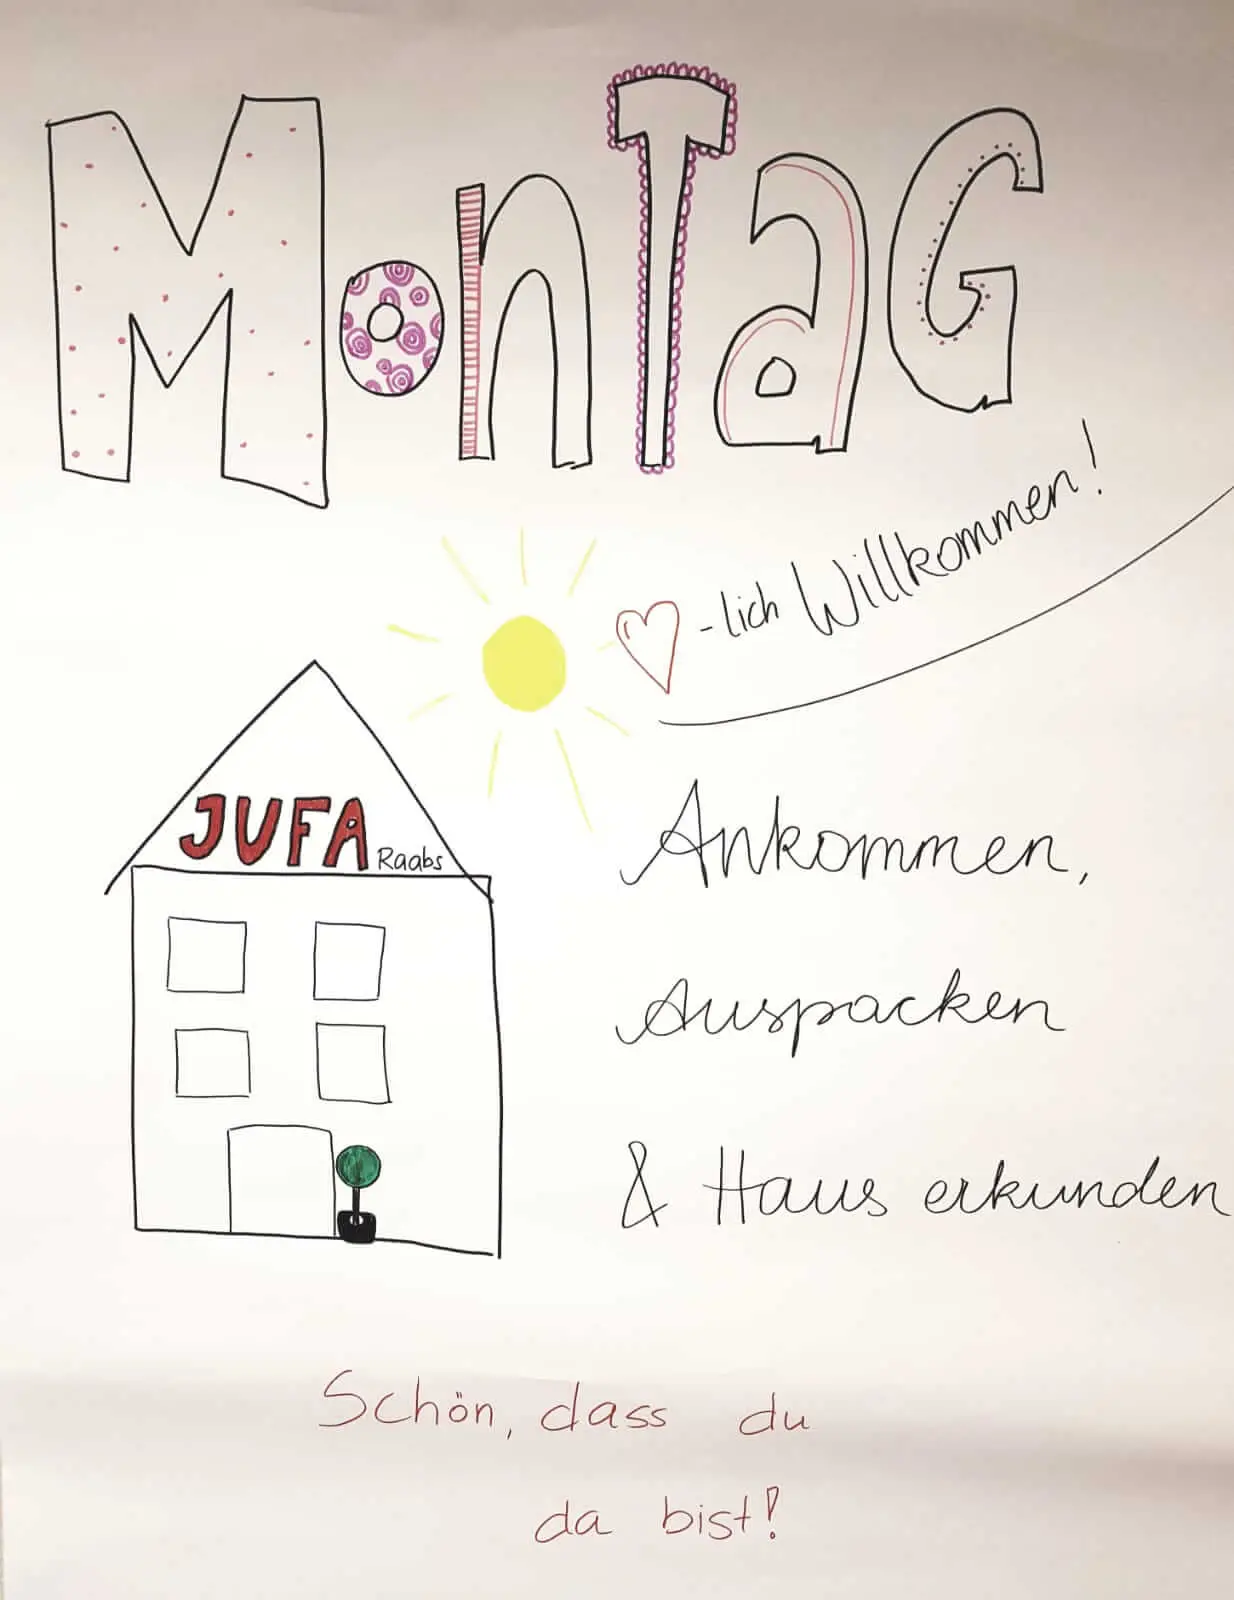 MonTaG
-lich Willkommen!
JUFA Raabs
Ankommen,
Auspacken
& Haus erkunden
Schön, dass du
da bist!